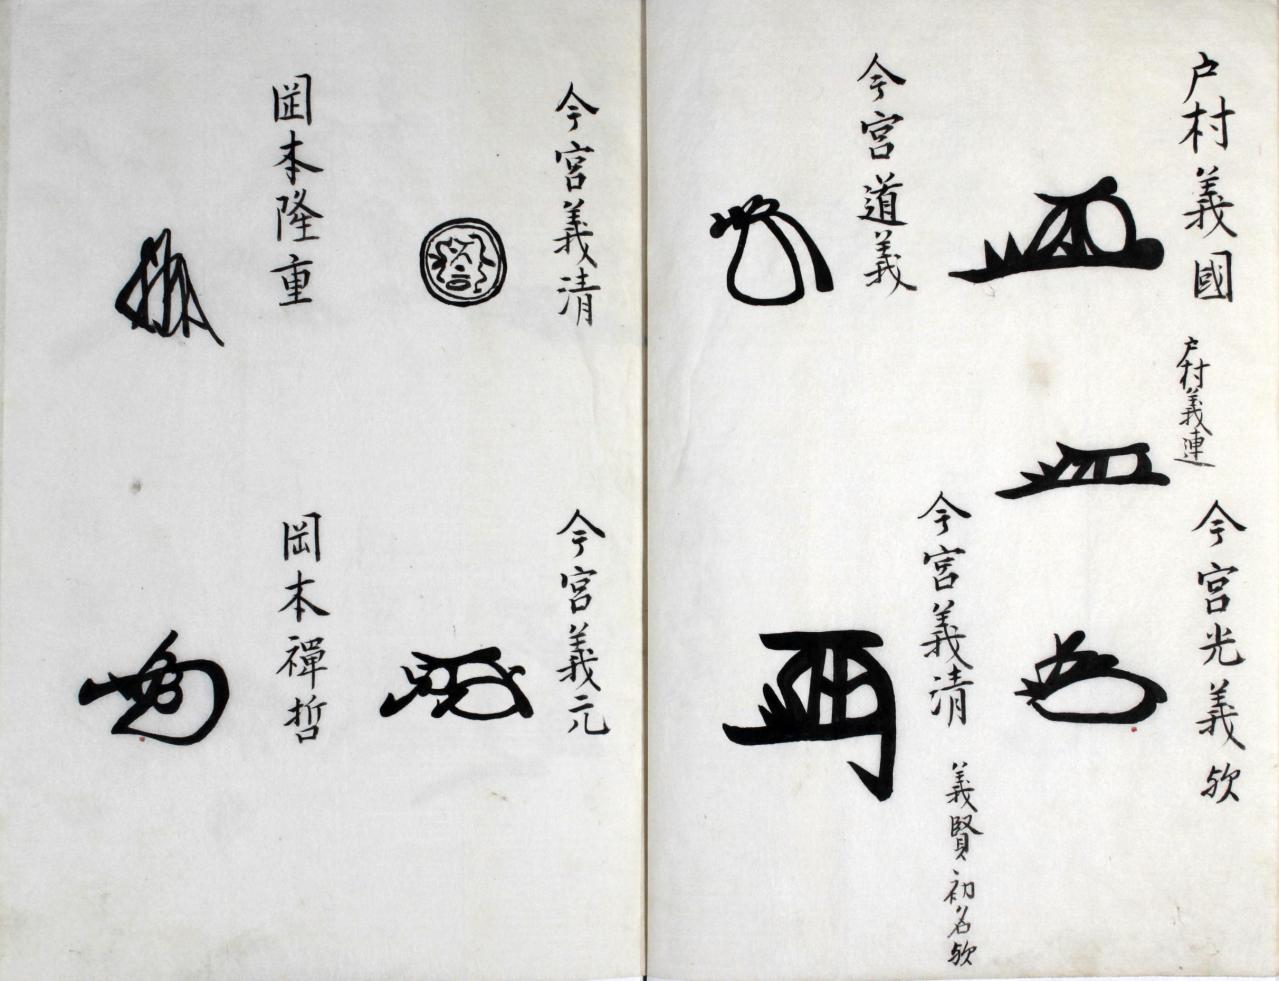 戸村義國
戸村義連
今宮光義欤
今宮道義
今宮義清
義賢初名欤
今宮義清
今宮義元
岡本隆重
岡本禪哲